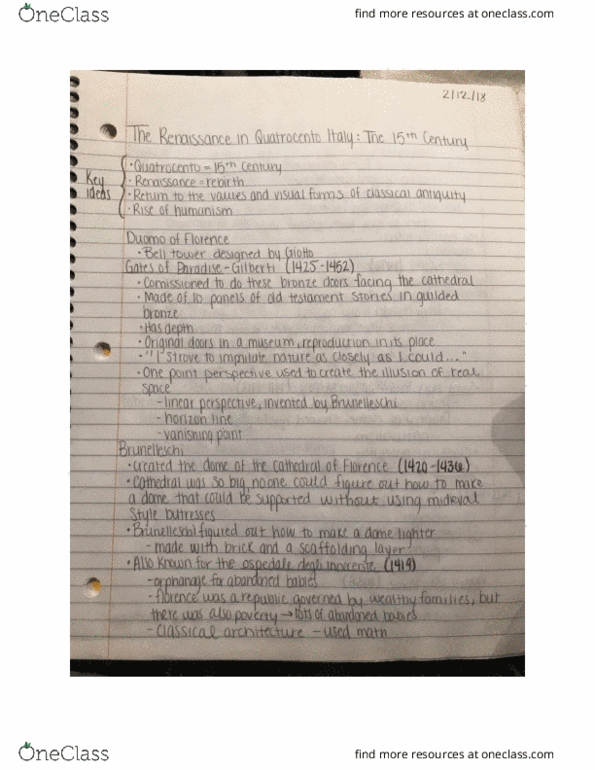 OneClass
find more resources at oneclass.com
2/12/18
The Renaissance in Quatrocento Italy: The 15th Century
Key ideas
• Quatrocento = 15th century
• Renaissance = rebirth
• Return to the values and visual forms of classical antiquity
• Rise of humanism
Duomo of Florence
• Bell tower designed by Giotto
Gates of Paradise - Gilberti (1425-1452)
• Comissioned to do these bronze doors facing the cathedral
• Made of 10 panels of old testament stories in guilded
bronze
• Has depth
• Original doors in a museum, reproduction in its place
• "I strove to impilate nature as closely as I could..."
• One point perspective used to create the illusion of real
space
- linear perspective, invented by Brunelleschi
- horizon line
- vanishing point
Brunelleschi
• created the dome of the cathedral of Florence (1420-1436)
• Cathedral was so big, no one could figure out how to make
a dome that could be supported without using midieval
style butresses
• Brunelleschi figured out how to make a dome lighter
- made with brick and a scaffolding layer
• Also known for the ospedale degli innocente (1419)
- orphanage for abandoned babies
- florence was a republic governed by wealthy families, but
there was also poverty → lots of abandoned babies
- Classical architecture - used math
OneClass
find more resources at oneclass.com